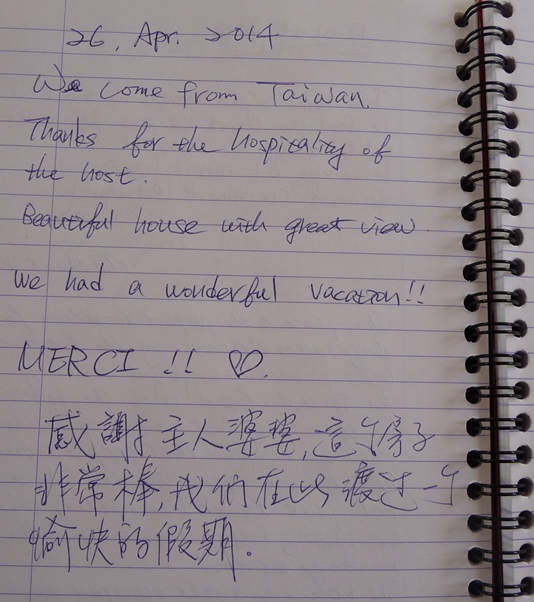 26, Apr. 2014
We come from Taiwan.
Thanks for the hospitality of
the host.
Beautiful house with great view.
We had a wonderful vacation!!
MERCI !! ♡.
感謝主人婆婆,這个房子
非常棒,我們在此渡过一个
愉快的假期.